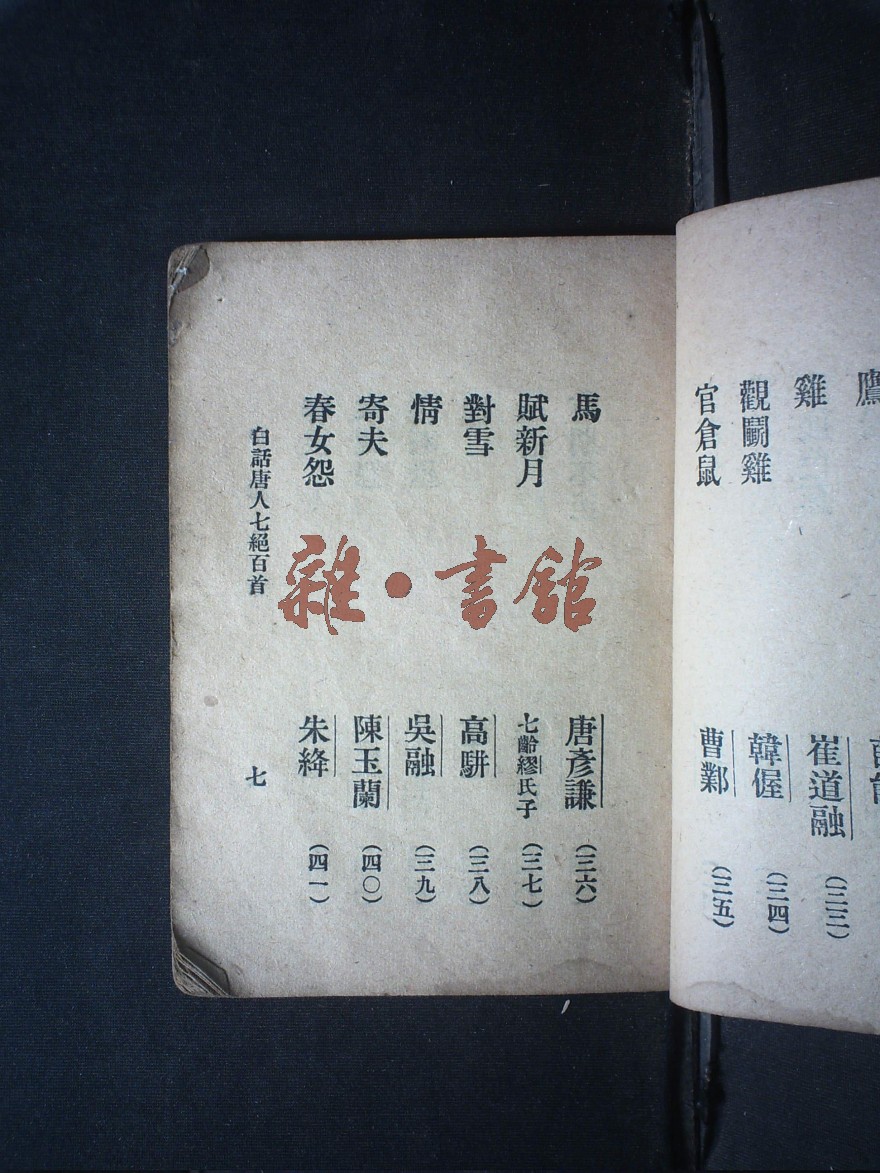 鷹
雞 崔道融 (三三)
觀鬭雞 韓偓 (三四)
官倉鼠 曹鄴 (三五)
馬 唐彥謙 (三六)
賦新月 七齡繆氏子 (三七)
對雪 高駢 (三八)
情 吳融 (三九)
寄夫 陳玉蘭 (四〇)
春女怨 朱絳 (四一)
白話唐人七絕百首 七
雜·書館